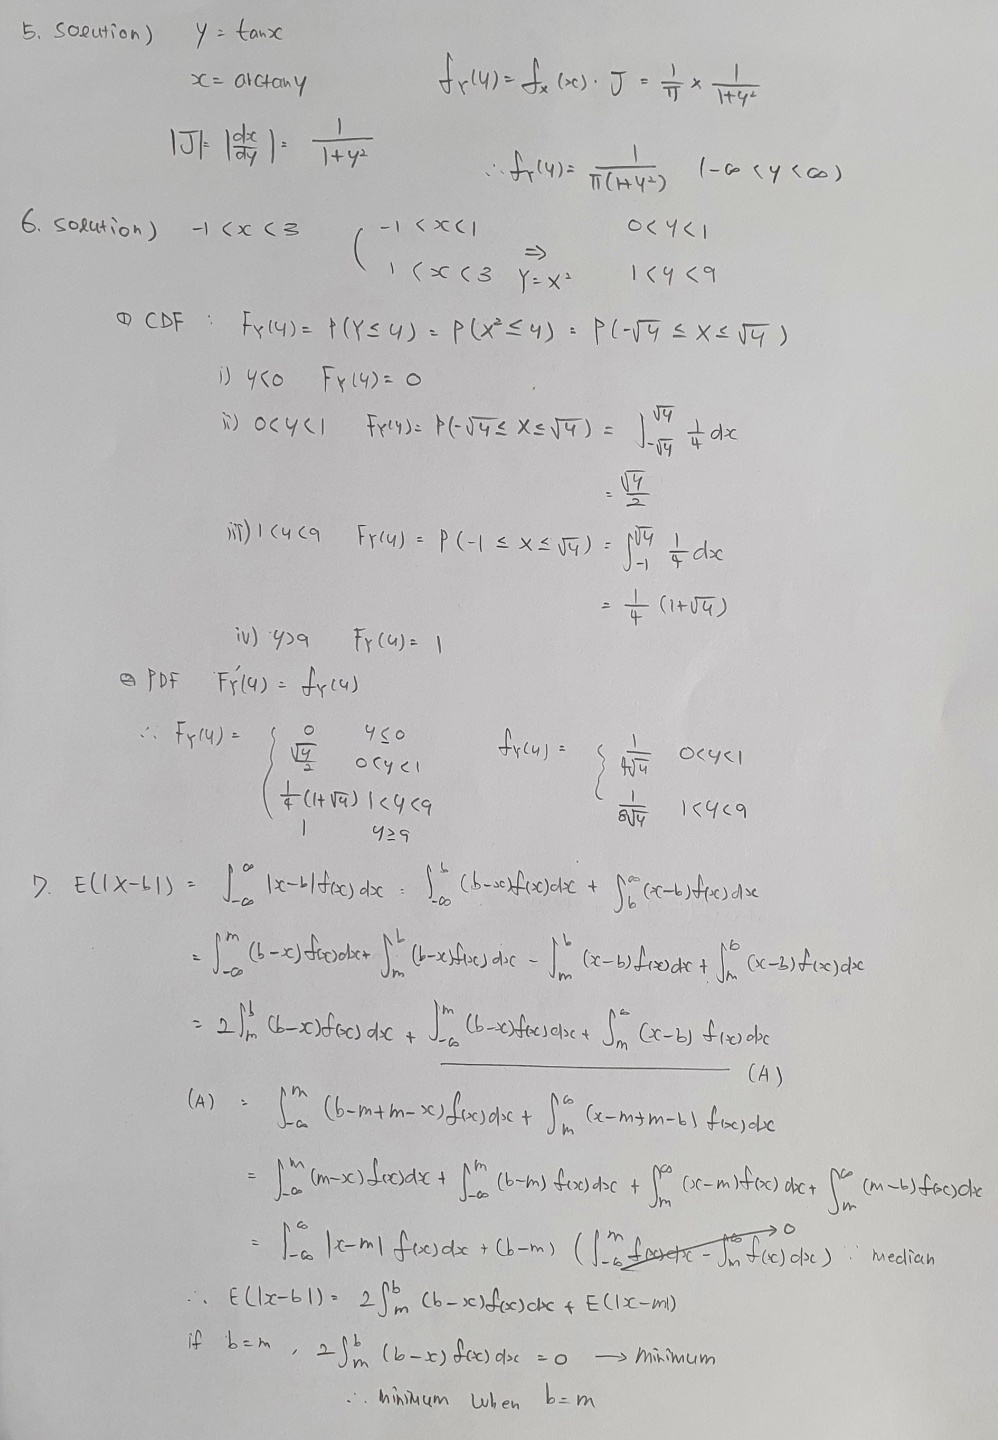 5. solution) y = tanx
x = arctany    f_Y(y) = f_x(x) · J = 1/π × 1/(1+y²)
|J| = |dx/dy| = 1/(1+y²)
∴ f_Y(y) = 1/(π(1+y²)) (-∞ < y < ∞)
6. solution) -1 < x < 3    ( -1 < x < 1    0 < y < 1
1 < x < 3 ⇒ Y = X²    1 < y < 9
① CDF : F_Y(y) = P(Y ≤ y) = P(X² ≤ y) = P(-√y ≤ X ≤ √y)
i) y<0 F_Y(y) = 0
ii) 0<y<1 F_Y(y) = P(-√y ≤ X ≤ √y) = ∫_{-√y}^{√y} 1/4 dx
= √y/2
iii) 1<y<9 F_Y(y) = P(-1 ≤ X ≤ √y) = ∫_{-1}^{√y} 1/4 dx
= 1/4 (1+√y)
iv) y>9 F_Y(y) = 1
② PDF F_Y'(y) = f_Y(y)
∴ F_Y(y) = { 0    y ≤ 0    f_Y(y) = { 1/(4√y)    0<y<1
√y/2    0<y<1
1/4 (1+√y)    1<y<9    1/(8√y)    1<y<9
1    y≥9
7. E(|X-b|) = ∫_{-∞}^{∞} |x-b| f(x) dx = ∫_{-∞}^{b} (b-x)f(x)dx + ∫_{b}^{∞} (x-b)f(x)dx
= ∫_{-∞}^{m} (b-x) f(x)dx + ∫_{m}^{b} (b-x)f(x)dx - ∫_{m}^{b} (x-b) f(x)dx + ∫_{m}^{∞} (x-b) f(x)dx
= 2∫_{m}^{b} (b-x)f(x)dx + ∫_{-∞}^{m} (b-x)f(x)dx + ∫_{m}^{∞} (x-b) f(x)dx
(A)
(A) = ∫_{-∞}^{m} (b-m+m-x) f(x)dx + ∫_{m}^{∞} (x-m+m-b) f(x)dx
= ∫_{-∞}^{m} (m-x) f(x)dx + ∫_{-∞}^{m} (b-m) f(x)dx + ∫_{m}^{∞} (x-m)f(x) dx + ∫_{m}^{∞} (m-b)f(x)dx
= ∫_{-∞}^{∞} |x-m| f(x)dx + (b-m) (∫_{-∞}^{m} f(x)dx - ∫_{m}^{∞} f(x)dx) → 0 ∵ median
∴ E(|x-b|) = 2∫_{m}^{b} (b-x)f(x)dx + E(|x-m|)
if b=m, 2∫_{m}^{b} (b-x) f(x) dx = 0 → minimum
∴ minimum when b=m